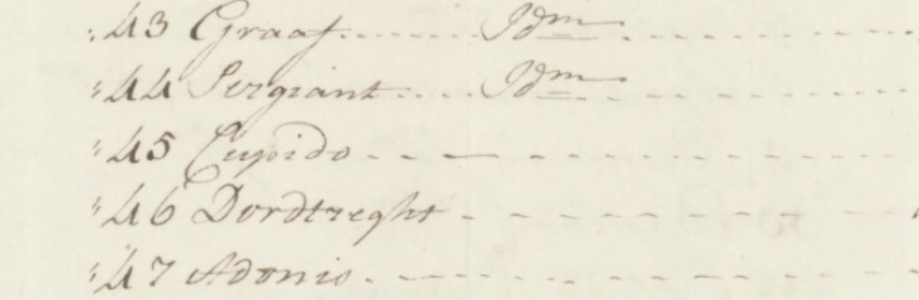 43 Graaf ...... Idm
44 Sergiant .... Idm
45 Cupido
46 Dordtreght
47 Adonis